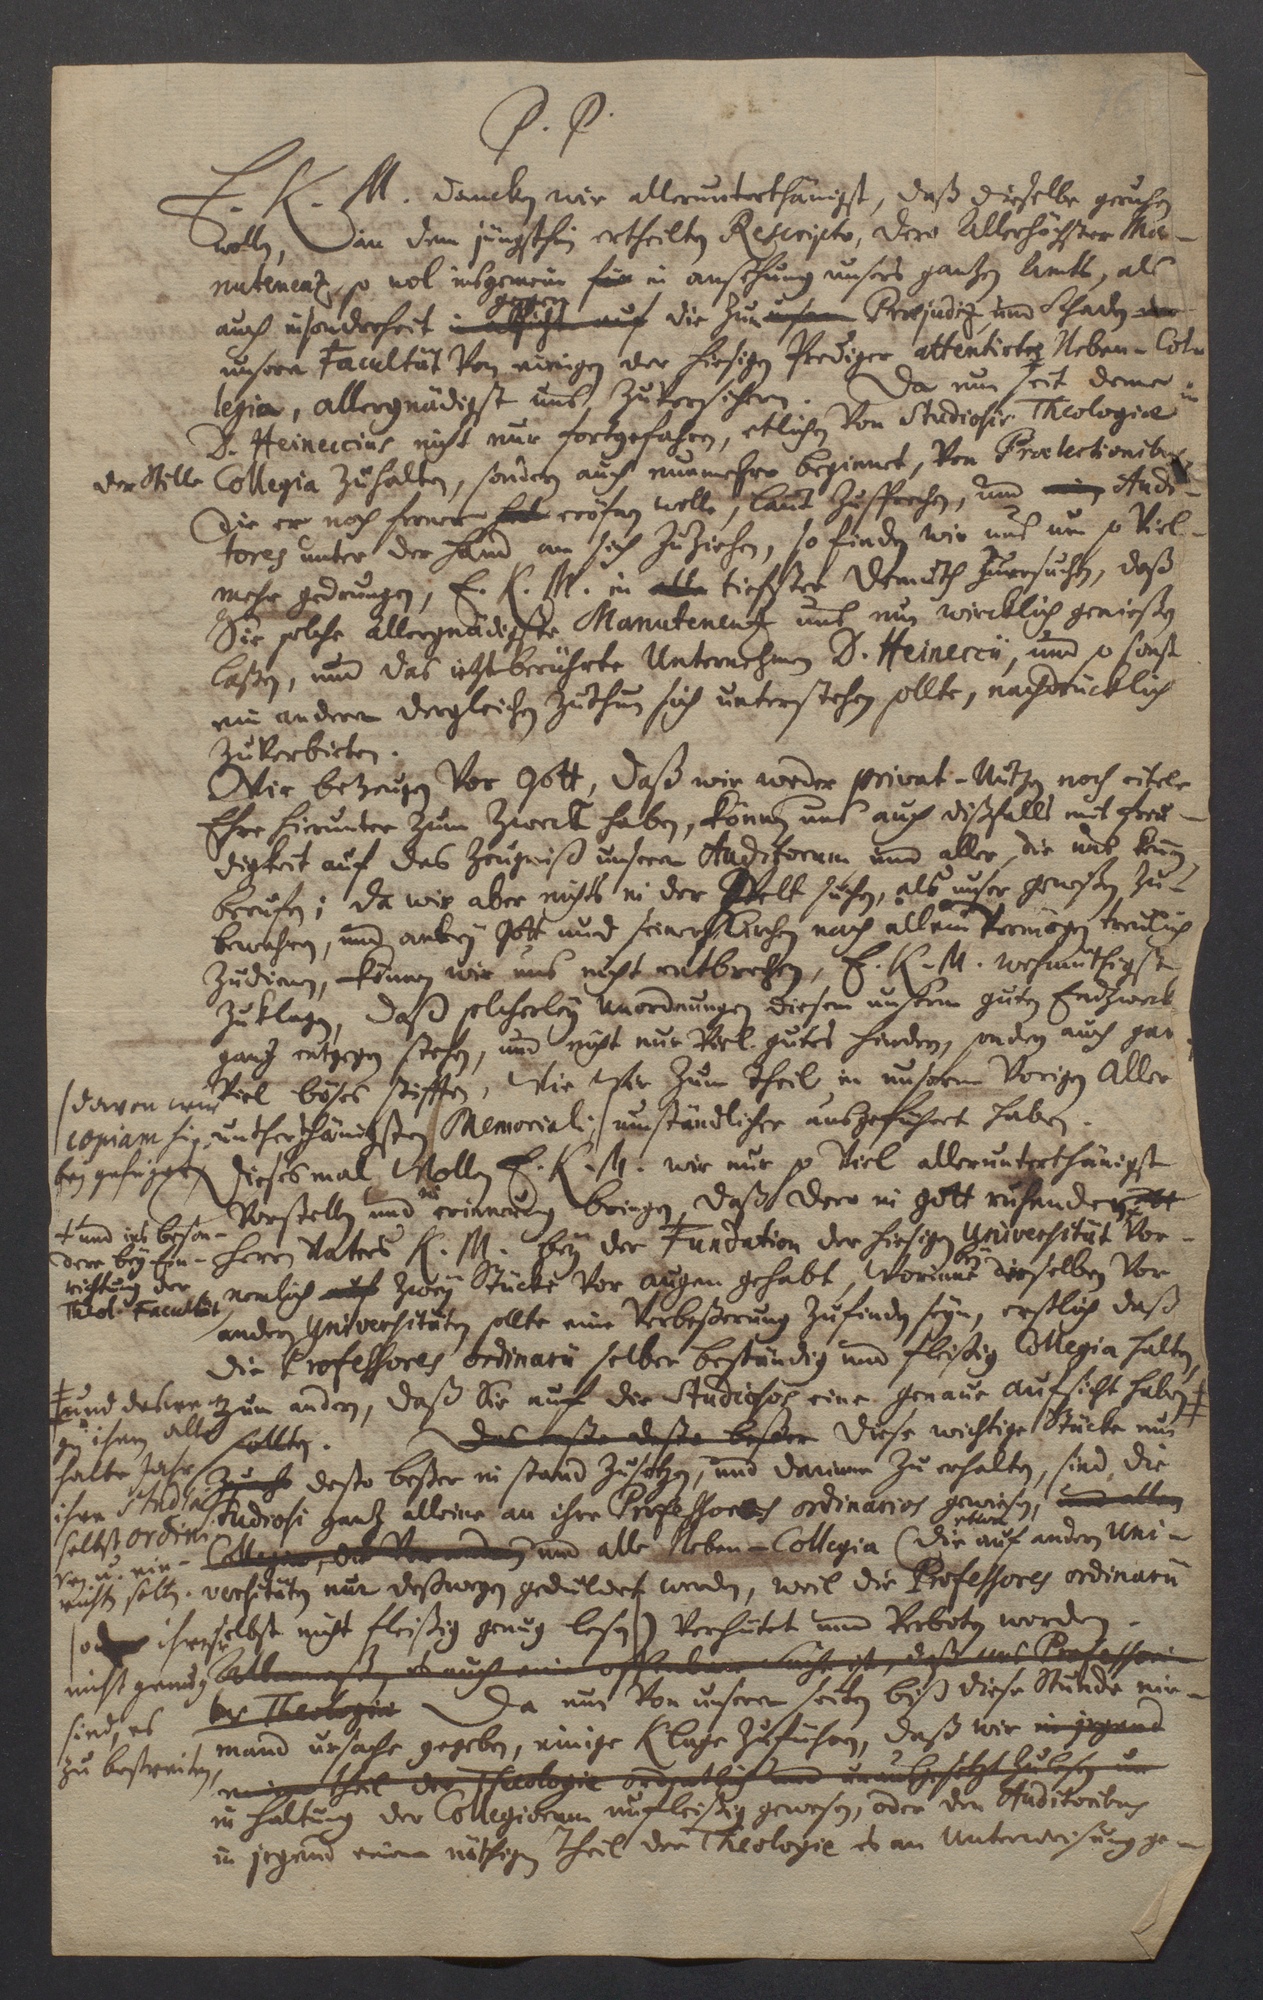 P. P.
E. K. M. dancken wir allerunterthänigst, daß dieselbe geruhen
wollen, in dem jüngsthin ertheilten Rescripto, dero Allerhöchster Ma-
nutenenz, so wol insgemein für in ansehung unsers gantzen Amts, als
auch insonderheit in absicht auf gegen die zum unsern Præjudiz und Schaden der
unserer Facultät von einigen der hiesigen Prediger attentirten Neben-Col-
legia, allergnädigst uns zuversichern. Da nun seit deme in
D. Heineccius nicht nur fortgefahren, etlichen von Studiosis Theologiæ
der Stille Collegia zuhalten, sondern auch nunmehro beginnet, von Prælectionibus,
die er noch ferner eröfnen wolle, laut zusprechen, und Audi-
tores unter der Hand an sich zuziehen, so finden wir uns um so viel-
mehr gedrungen, E. K. M. in tiefster Demuth zuersuchen, daß
Sie solche allergnädigste Manutenenz uns nun wircklich genießen
laßen, und das jetztberührte Unternehmen D. Heineccii, und so sonst
ein anderer dergleichen zuthun sich unterstehen sollte, nachdrücklich
zuverbieten.
Wir bezeugen vor Gott, daß wir weder privat-Nutzen noch eitele
Ehre hierunter zum Zweck haben, können uns auch dißfalls mit freu-
digkeit auf das Zeugniß unserer Auditorum und aller, die uns kennen,
beruffen; da wir aber nichts in der Welt suchen, als unser gewißen zu-
bewahren, und anbey Gott und seiner Kirchen nach allem Vermögen treulich
zudienen, können wir uns nicht entbrechen, E. K. M. wehmüthigst
zuklagen, daß solcherley Unordnungen diesem unserm guten Endzweck
gantz entgegen stehen, und nicht nur viel gutes hindern, sondern auch gar
viel böses stifften, wie wir zum Theil in unserm vorigen Aller
unterthänigsten Memorial umständlicher ausgeführet haben.
(davon wir
copiam hie-
bey gefüget)
Diesesmal wollen E. K. M. wir nur so viel allerunterthänigst
vorstellen und in erinnerung bringen, daß dero in Gott ruhenden
Herrn Vaters K. M. bey der Fundation der hiesigen Universität vor-
+ und ins beson-
dere bey Ein-
richtung der
Theol. Facultät
nemlich auf zwey Stücke vor augen gehabt, worinne bey derselben vor
andern Universitäten sollte eine Verbeßerung zufinden seyn, erstlich daß
die Professores ordinarii selber beständig und fleißig Collegia halten,
zum andern, daß Sie auf die Studiosos eine genaue aufsicht haben ‡
‡ und deswe-
gen ihnen alle
halbe Jahr
ihre Studia
selbst ordini-
ren u. ein-
richten solten.
sollten. Das erste desto beßer Diese wichtige Stücke nun
desto beßer in stand zusetzen, und darinne zu erhalten, sind die
Studiosi gantz alleine an ihre Professores ordinarios gewiesen, und allen
Collegia, die von andern und alle Neben-Collegia (die etwan auf andern Uni-
versitäten nur deßwegen geduldet werden, weil die Professores ordinarii
selbst nicht fleißig genug lesen) verhütet und verboten worden.
(oder ihrer
nicht genug
sind, es
zu bestreiten,
Theologiæ Da nun von unserer seiten biß diese Stunde nie-
mand ursache gegeben, einige Klage zuführen, daß wir in irgend
einen theil der Theologie ordentlich und unausgesetzt zulesen
in haltung der Collegiorum unfleißig gewesen, oder den Auditoribus
in irgend einem nöthigen Theil der Theologie es an Unterweisung ge-